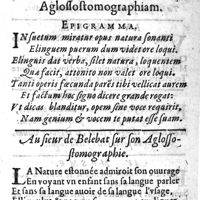 Aglossostomographiam.
EPIGRAMMA.
INsuetum miratur opus natura sonanti
Elinguem puerum dum videt ore loqui.
Elinguis dat verba, silet natura, loquentem
Qua facit, attonito non valet ore loqui.
Tanti operis fœcunda parẽs tibi vellicat aurem
Et factum hoc signo dicere grande rogat:
Vt dicas blanditur, opem sine voce requirit,
Nam genium & vocem te putat esse suam.
Au sieur de Belebat sur son Aglosso-
stomographie.
LA Nature estonnée admiroit son ouurage
En voyant vn enfant sans sa langue parler
Et sans sa langue auoir de sa langue l'vsage,